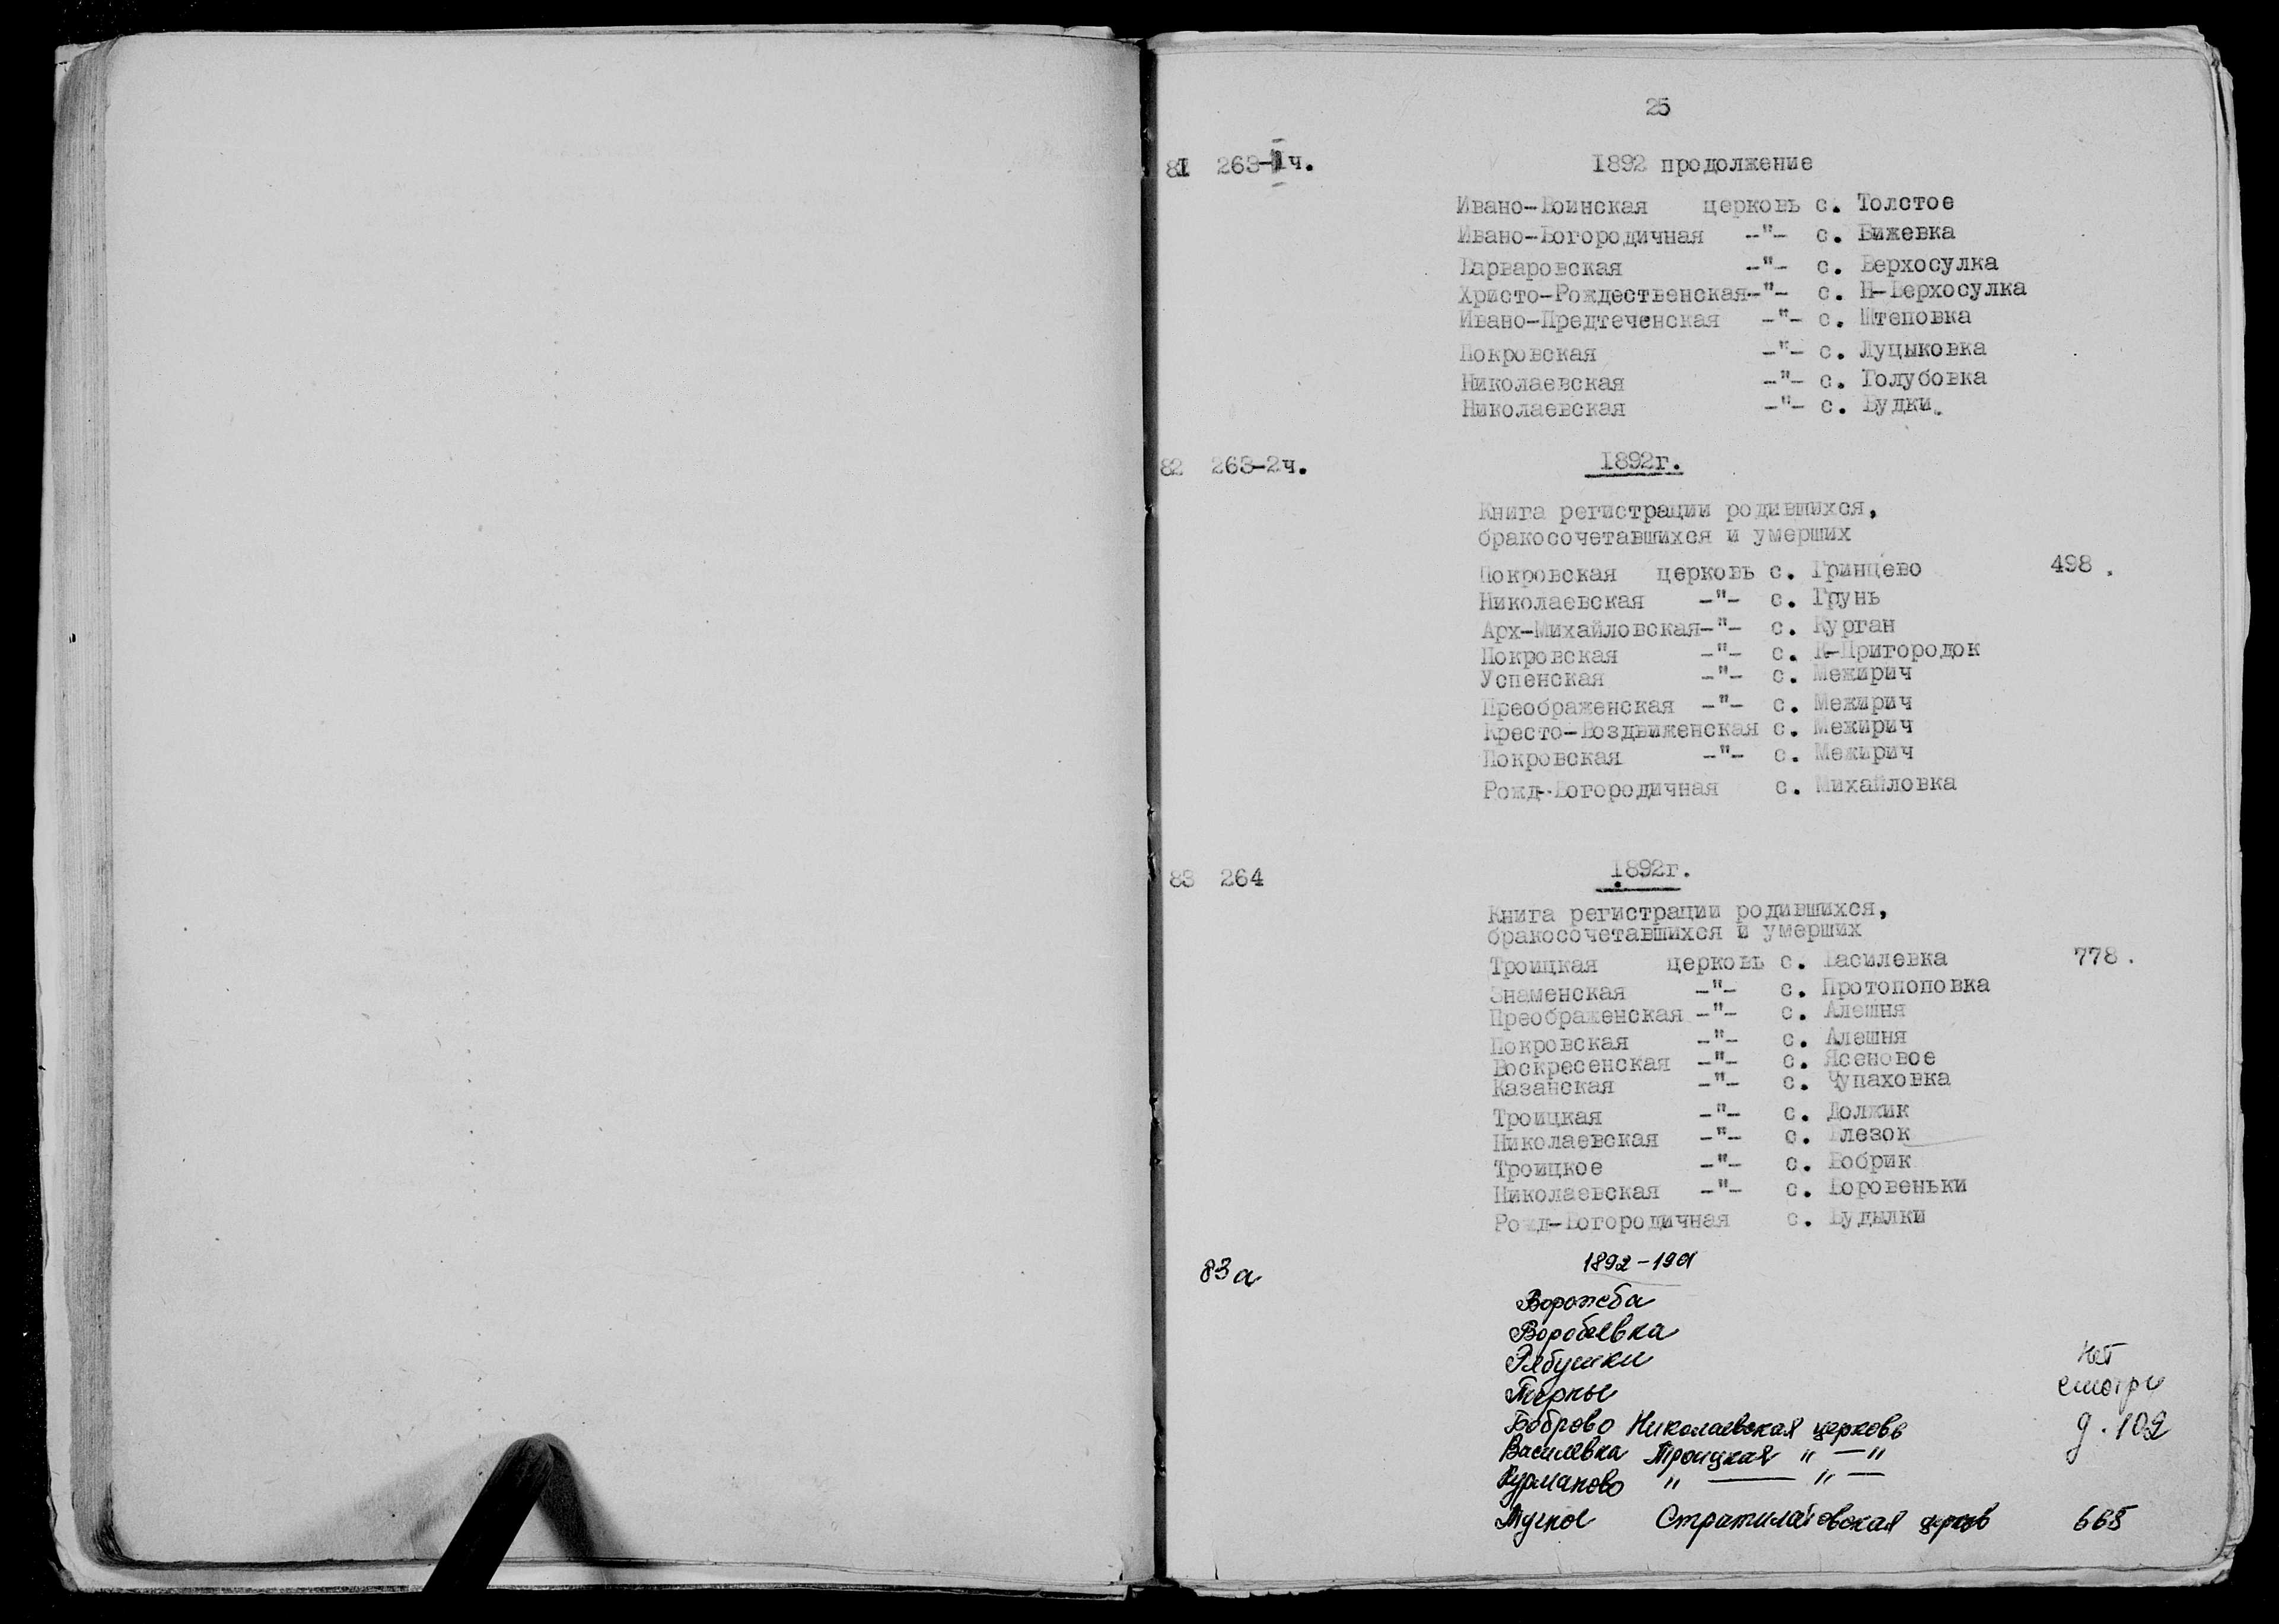 25
81 263-1ч. 1892 продолжение
Ивано-Воинская церковь с. Толстое
Ивано-Богородичная -"- с. Бижевка
Варваровская -"- с. Верхосулка
Христо-Рождественская-"- с. Н-Верхосулка
Ивано-Предтеченская -"- с. Штеповка
Покровская -"- с. Луцыковка
Николаевская -"- с. Голубовка
Николаевская -"- с. Будки.
82 263-2ч. 1892г.
Книга регистрации родившихся,
бракосочетавшихся и умерших
Покровская церковь с. Гринцево 498.
Николаевская -"- с. Грунь
Арх-Михайловская-"- с. Курган
Покровская -"- с. К-Пригородок
Успенская -"- с. Межирич
Преображенская -"- с. Межирич
Кресто-Воздвиженская с. Межирич
Покровская -"- с. Межирич
Рожд-Богородичная с. Михайловка
83 264 1892г.
Книга регистрации родившихся,
бракосочетавшихся и умерших
Троицкая церковь с. Василевка 778.
Знаменская -"- с. Протопоповка
Преображенская -"- с. Алешня
Покровская -"- с. Алешня
Воскресенская -"- с. Ясеновое
Казанская -"- с. Чупаховка
Троицкая -"- с. Должик
Николаевская -"- с. Влезок
Троицкое -"- с. Бобрик
Николаевская -"- с. Боровеньки
Рожд-Богородичная с. Будылки
83а 1892-19
Ворожеба
Воробьевка
Рябушки нет
Терны смотри
Боброво Николаевская церковь д. 102
Василевка Троицкая " — "
Курманово " — " —
Стратилатовская церковь 665